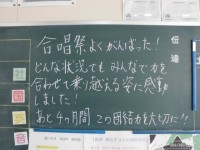 合唱祭よくがんばった!
どんな状況でもみんなで力を
合わせて乗り越える姿に感動
しました!
あと4ヶ月間 この団結力を大切に!!
伝達